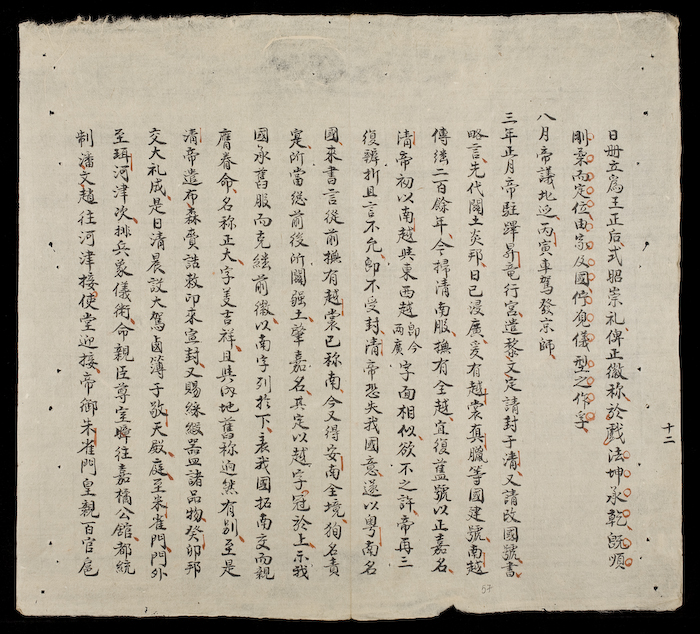 日冊立爲王正后式昭崇礼俾正徽称於戲法坤承乾旣順
剛柔而定位由家及國伫覩儀型之作孚
八月帝議北廵丙寅車駕發京師
三年正月帝駐蹕昇竜行宮遣黎文定請封于清又請改國號書
略言先代闢土炎邦日已浸廣爰有越裳真臘等國建號南越
傳継二百餘年今掃清南服撫有全越宜復舊號以正嘉名
清帝初以南越與東西越即今兩廣字面相似欲不之許帝再三
復辨折且言不允即不受封清帝恐失我國意遂以粤南名
國來書言從前撫有越裳已称南今又得安南全境狥名責
寔所當緫前後所闢疆土肇嘉名其定以越字冠於上示我
國承舊服而克継前徽以南字列於下表我國拓南交而親
膺眷命名称正大字義吉祥且與內地舊称迥然有别至是
清帝遣布森賫誥敕印來宣封又賜綵緞器皿諸品物癸卯邦
交大礼成是日清晨設大駕鹵簿于敬天殿庭至朱雀門門外
至珥河津次排兵象儀術命親臣尊室暲往嘉橘公館都統
制潘文趙往河津接使堂迎接帝御朱雀門皇親百官扈
十二
57